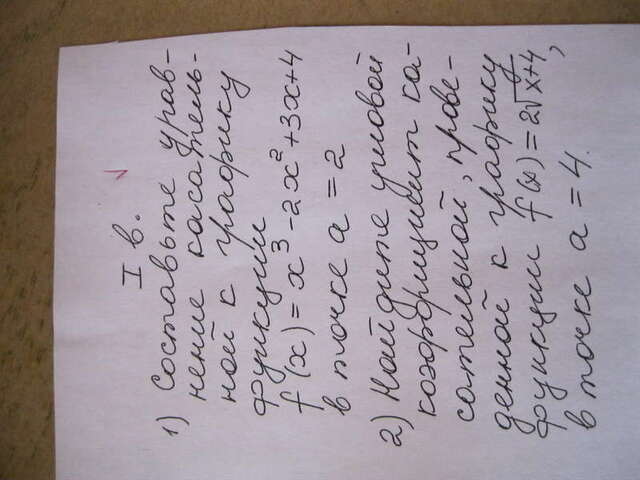 I в.
1) Составьте урав-
нение касатель-
ной к графику
функции
f(x) = x³ - 2x² + 3x + 4
в точке a = 2
2) Найдите угловой
коэффициент ка-
сательной, прове-
денной к графику
функции f(x) = 2√x+4,
в точке a = 4.